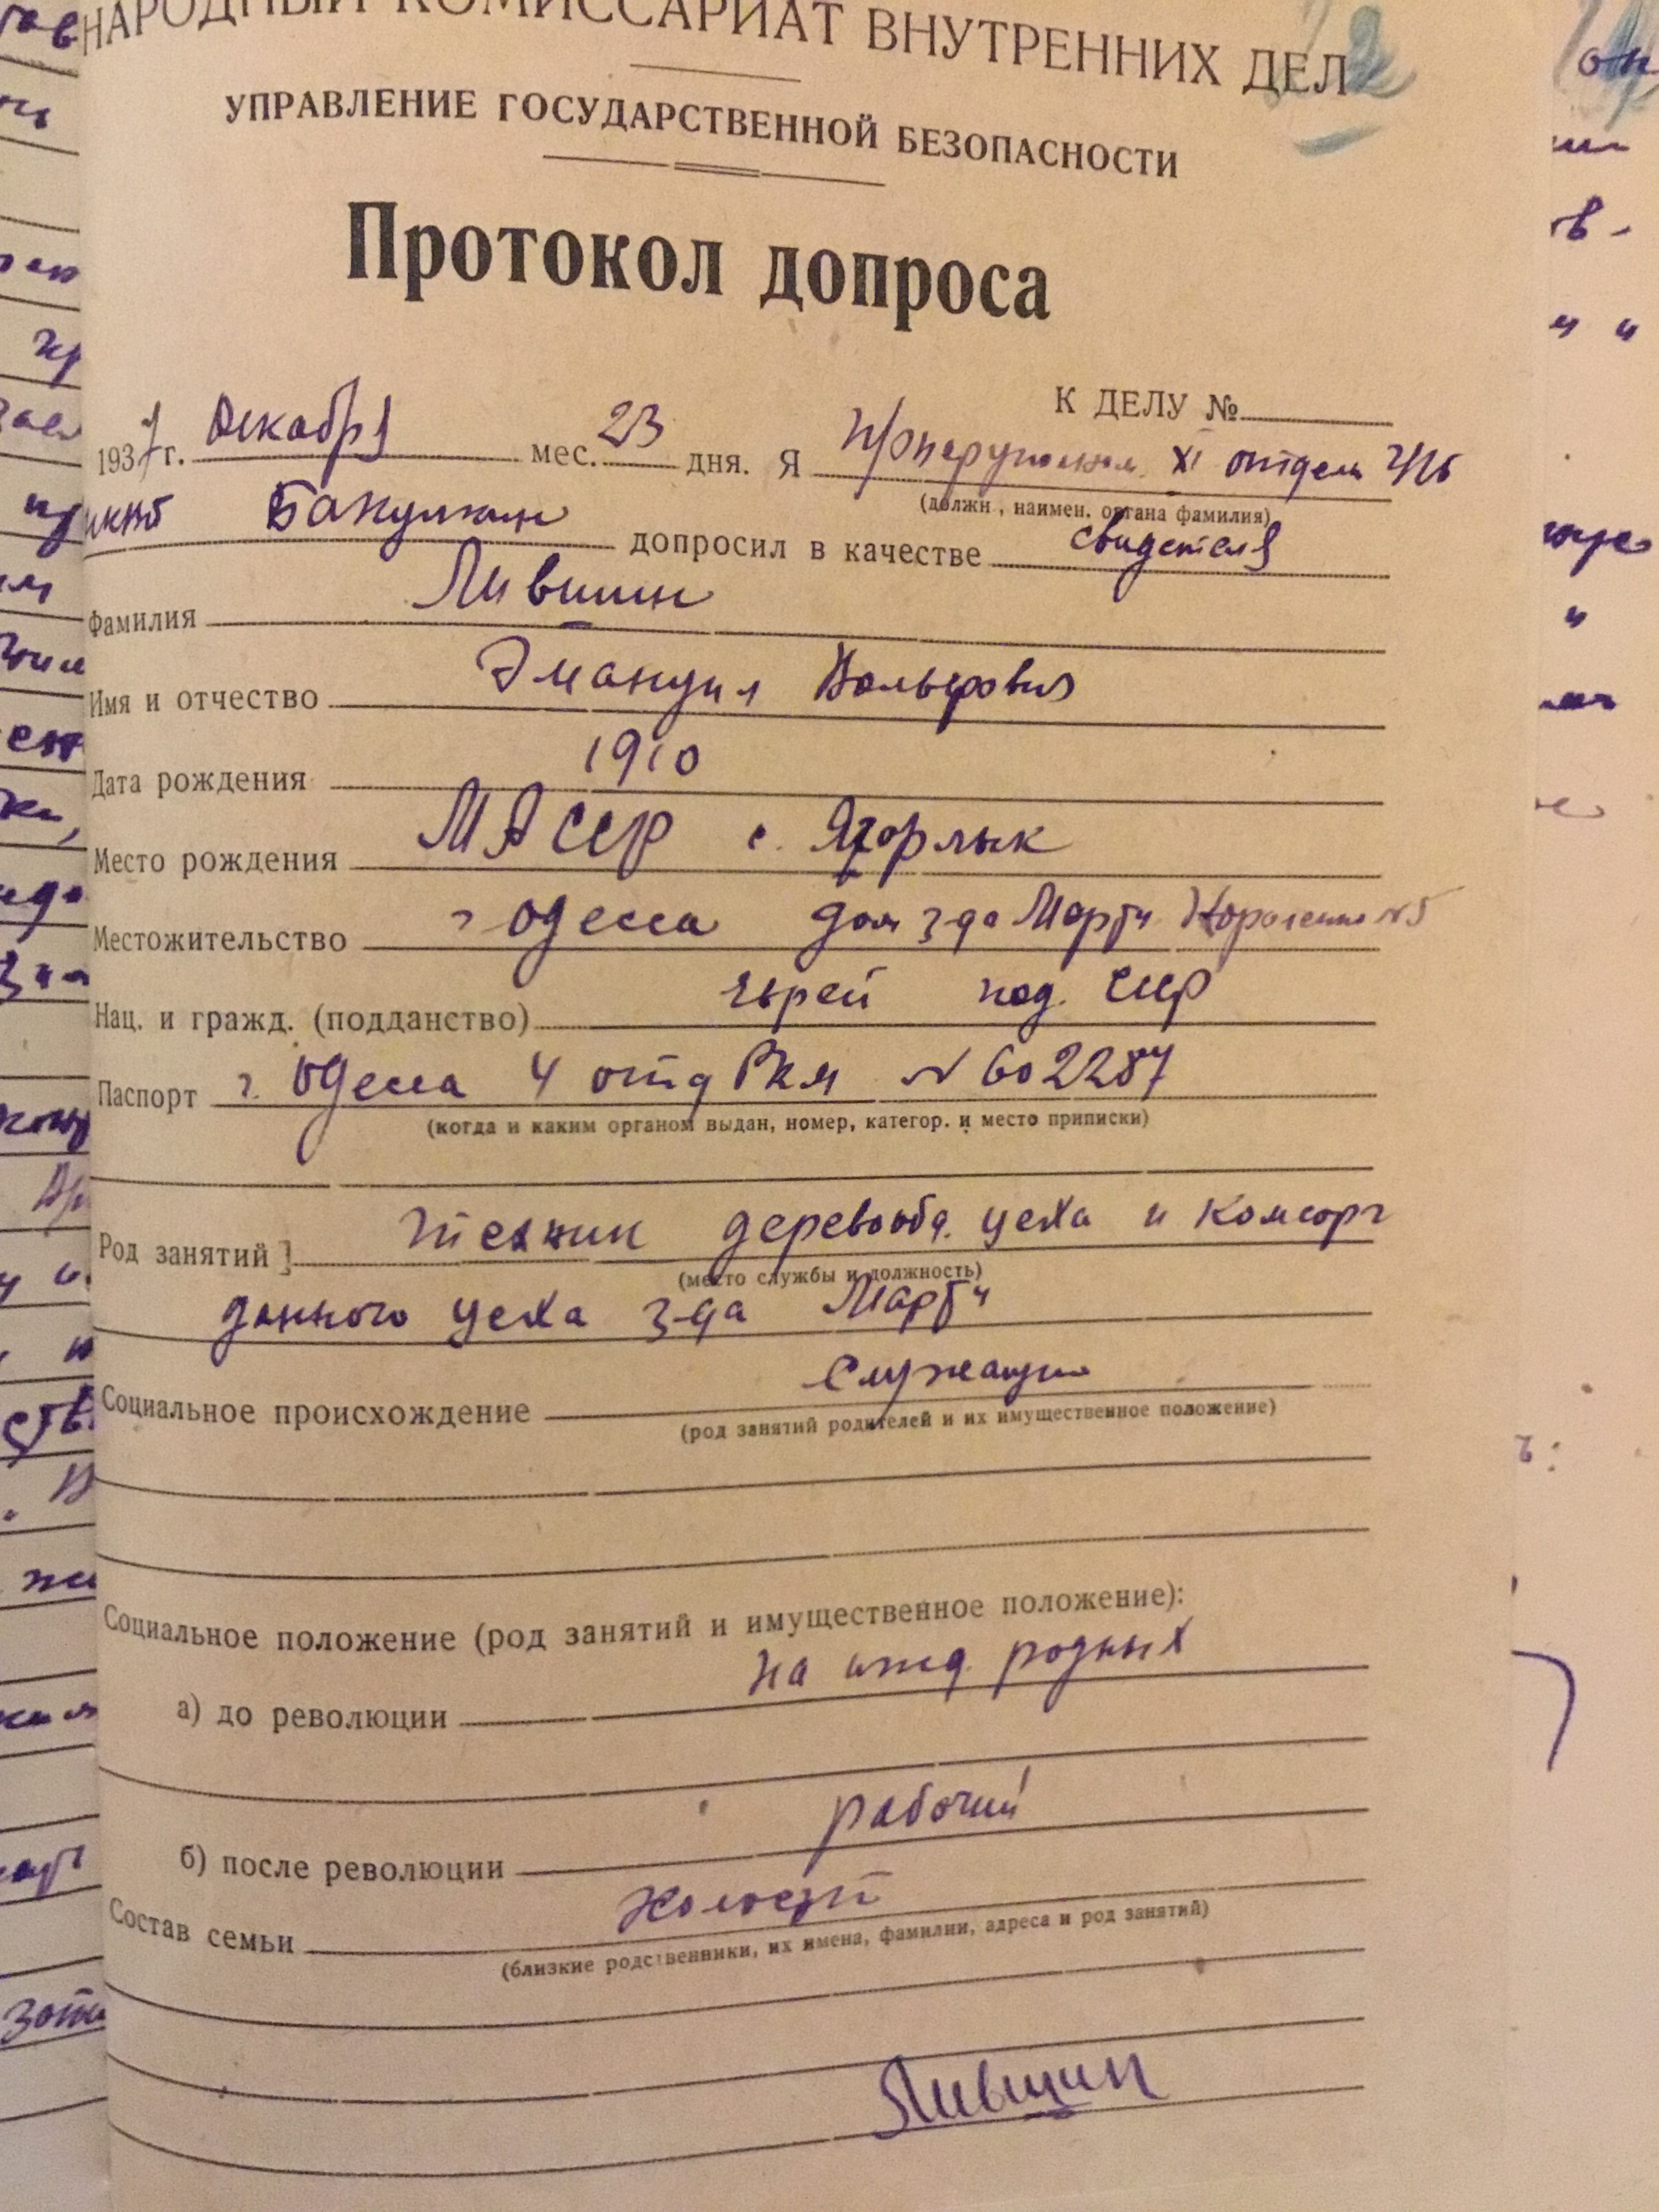 НАРОДНЫЙ КОМИССАРИАТ ВНУТРЕННИХ ДЕЛ
УПРАВЛЕНИЕ ГОСУДАРСТВЕННОЙ БЕЗОПАСНОСТИ
Протокол допроса
К ДЕЛУ №
1937 г. Декабря мес. 23 дня. Я XI отдел
(должн., наимен. органа фамилия)
допросил в качестве свидетеля
Фамилия Лившин
Имя и отчество Эмануил Вольфович
Дата рождения 1910
Место рождения МАССР с. Ягорлык
Местожительство г Одесса дом з-да Марти №5
Нац. и гражд. (подданство) еврей под. СССР
Паспорт г. Одесса 4 отд РКМ № 602287
(когда и каким органом выдан, номер, категор. и место приписки)
Род занятий техник деревообд. цеха и комсорг
(место службы и должность)
данного цеха з-да Марти
Социальное происхождение служащий
(род занятий родителей и их имущественное положение)
Социальное положение (род занятий и имущественное положение):
а) до революции на ижд. родных
б) после революции рабочий
Состав семьи холостой
(близкие родственники, их имена, фамилии, адреса и род занятий)
Лившин